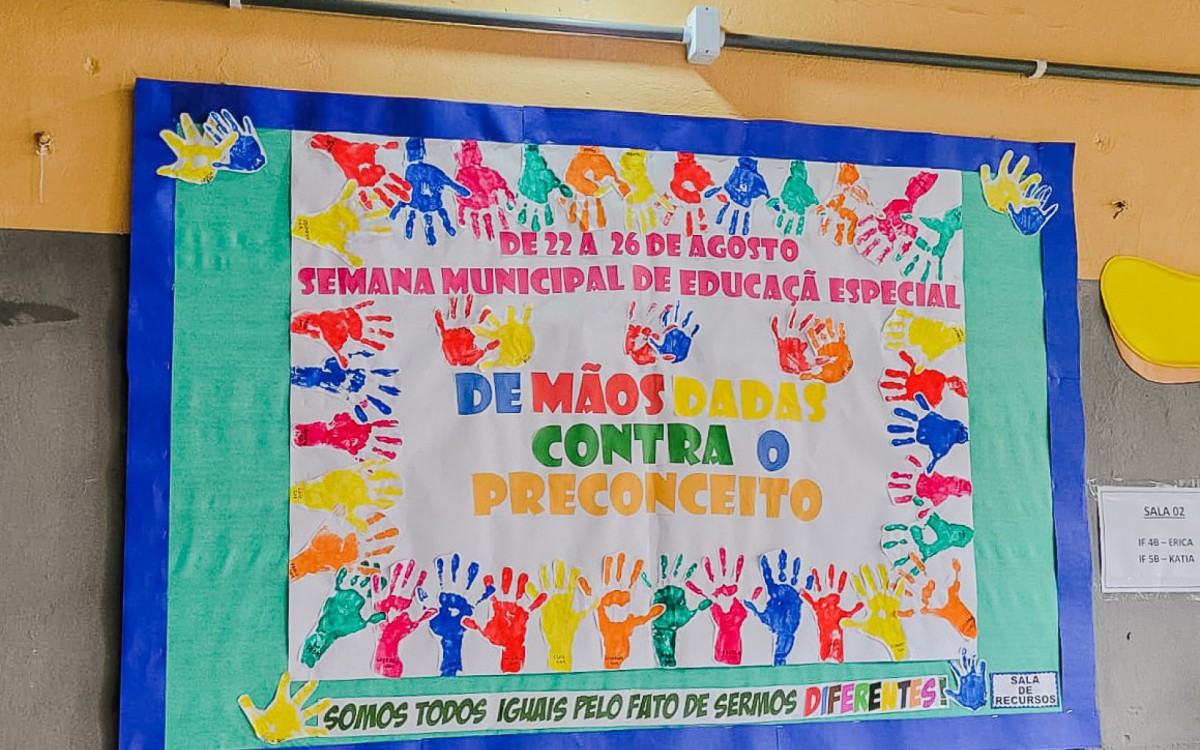 DE 22 A 26 DE AGOSTO
SEMANA MUNICIPAL DE EDUCAÇÃ ESPECIAL
DE MÃOS DADAS
CONTRA O
PRECONCEITO
SOMOS TODOS IGUAIS PELO FATO DE SERMOS DIFERENTES!
SALA
DE
RECURSOS
SALA 02
IF 4B – ERICA
IF 5B – KATIA